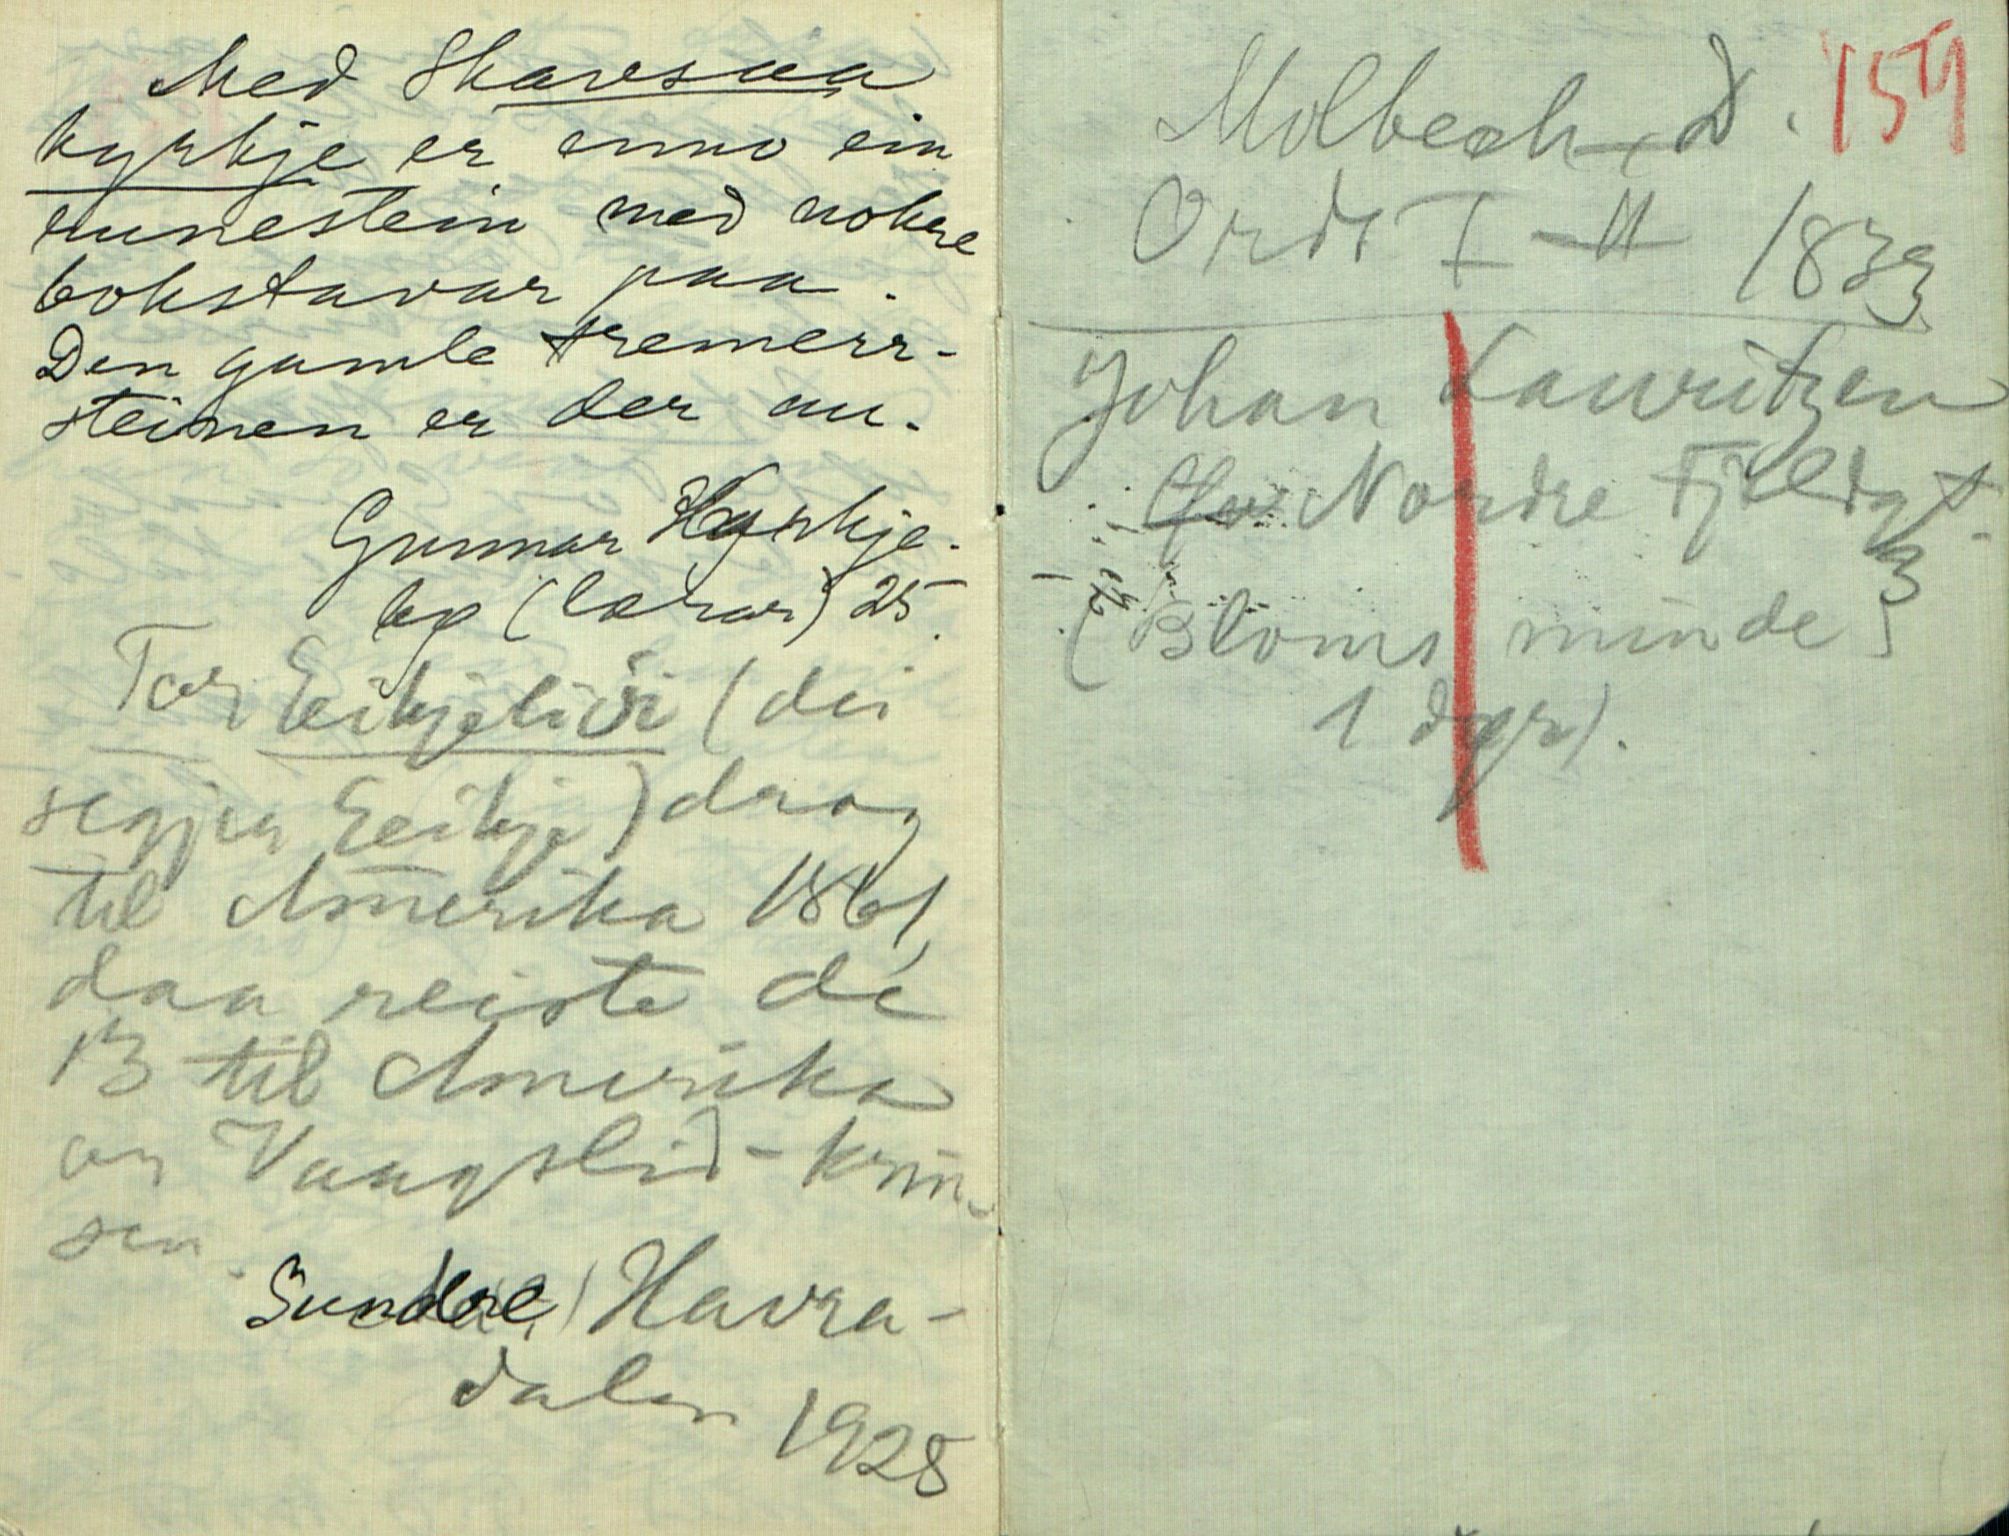 Med Skavsaa
kyrkje er enno ein
runestein med nokre
bokstavar paa.
Den gamle tremerr-
steinen er der au.
Gunnar Kyrkje-
bø (lærar) 25.
Tor Eikjeliði (dei
segjer Eikje) drog
til Amerika 1861,
daa reiste de
13 til Amerika
or Vaagslid-krin-
sen.
Sundre, Havra-
dalen 1928
159
Molbech, D.
Ordb I-II 1833
Johan Lauritzen
Nordre Fjeldgt.
3
(Bloms minde
1 dør).